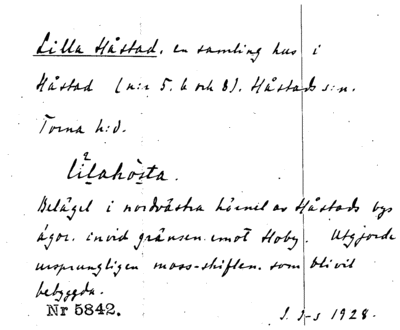 Lilla Håstad, en samling hus i
Håstad (n:r 5, 6 och 8). Håstads s:n.
Torna h:d.
lílahòsta.
Beläget i nordvästra hörnet av Håstads bys
ägor invid gränsen emot Hoby. Utgjorde
ursprungligen moss-skiften som blivit
bebyggda.
Nr 5842.
1928.